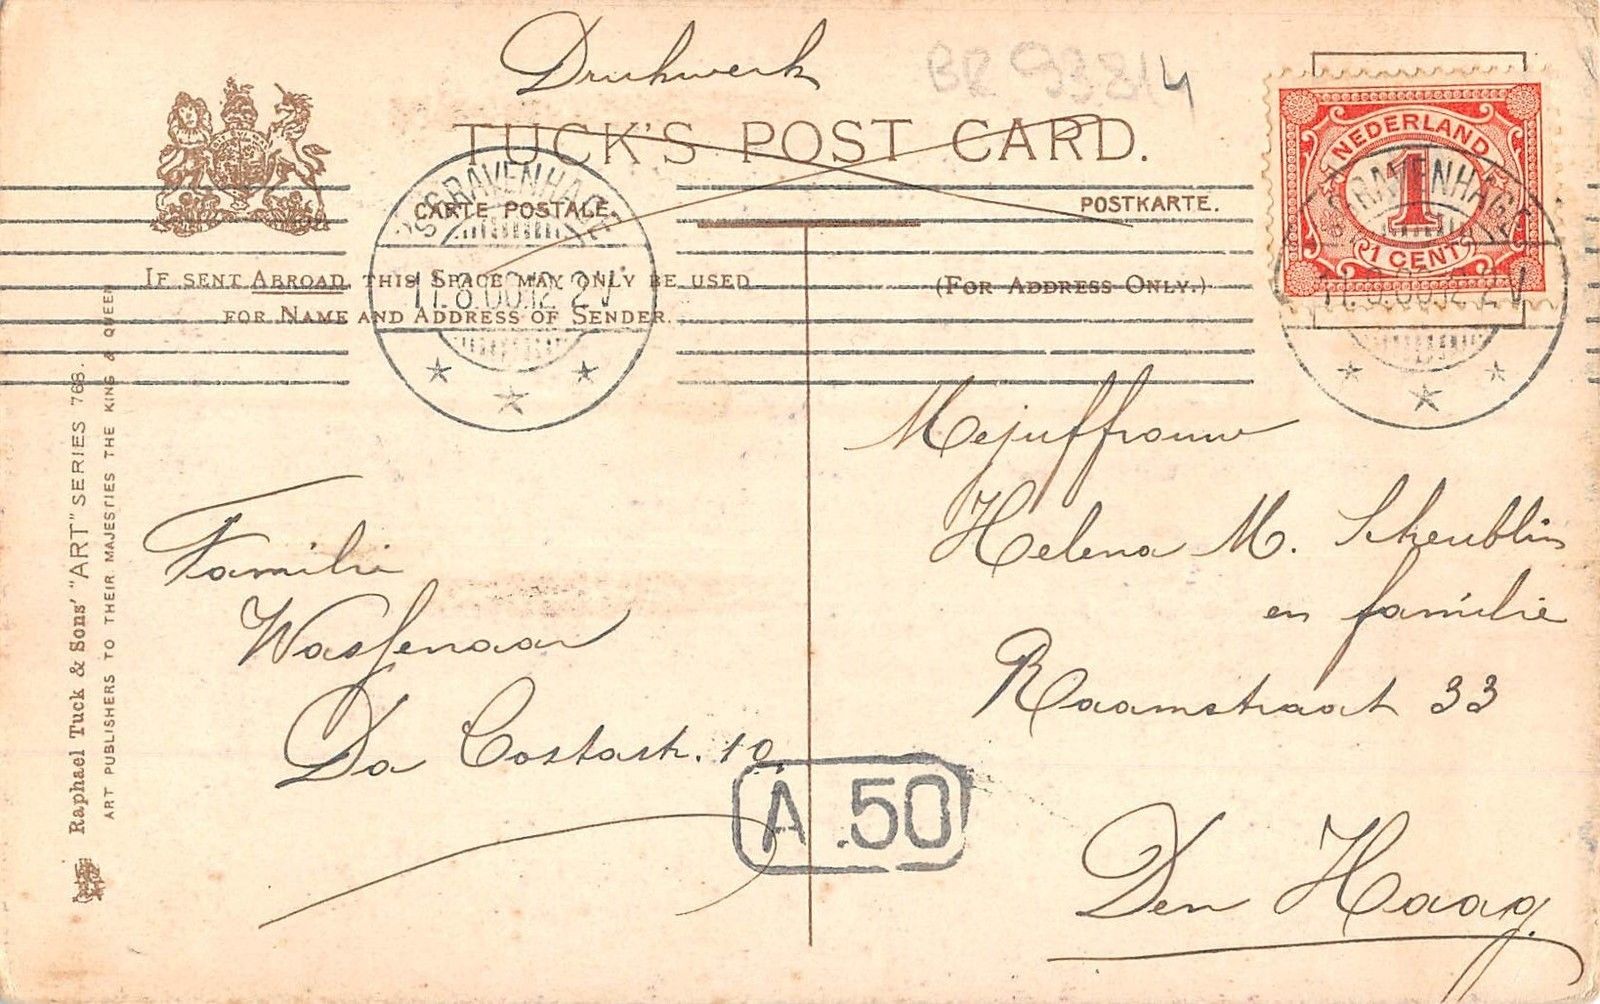 Drukwerk
TUCK'S POST CARD.
CARTE POSTALE.
POSTKARTE.
IF SENT ABROAD, THIS SPACE MAY ONLY BE USED
FOR NAME AND ADDRESS OF SENDER.
(FOR ADDRESS ONLY.)
'S GRAVENHAGE
NEDERLAND
1
1 CENT
'S GRAVENHAGE
Raphael Tuck & Sons' "ART" SERIES 768.
ART PUBLISHERS TO THEIR MAJESTIES THE KING & QUEEN
Familie
Wassenaar
Da Costastr. 10.
A .50
Mejuffrouw
Helena M. Scheublin
en familie
Raamstraat 33
Den Haag.